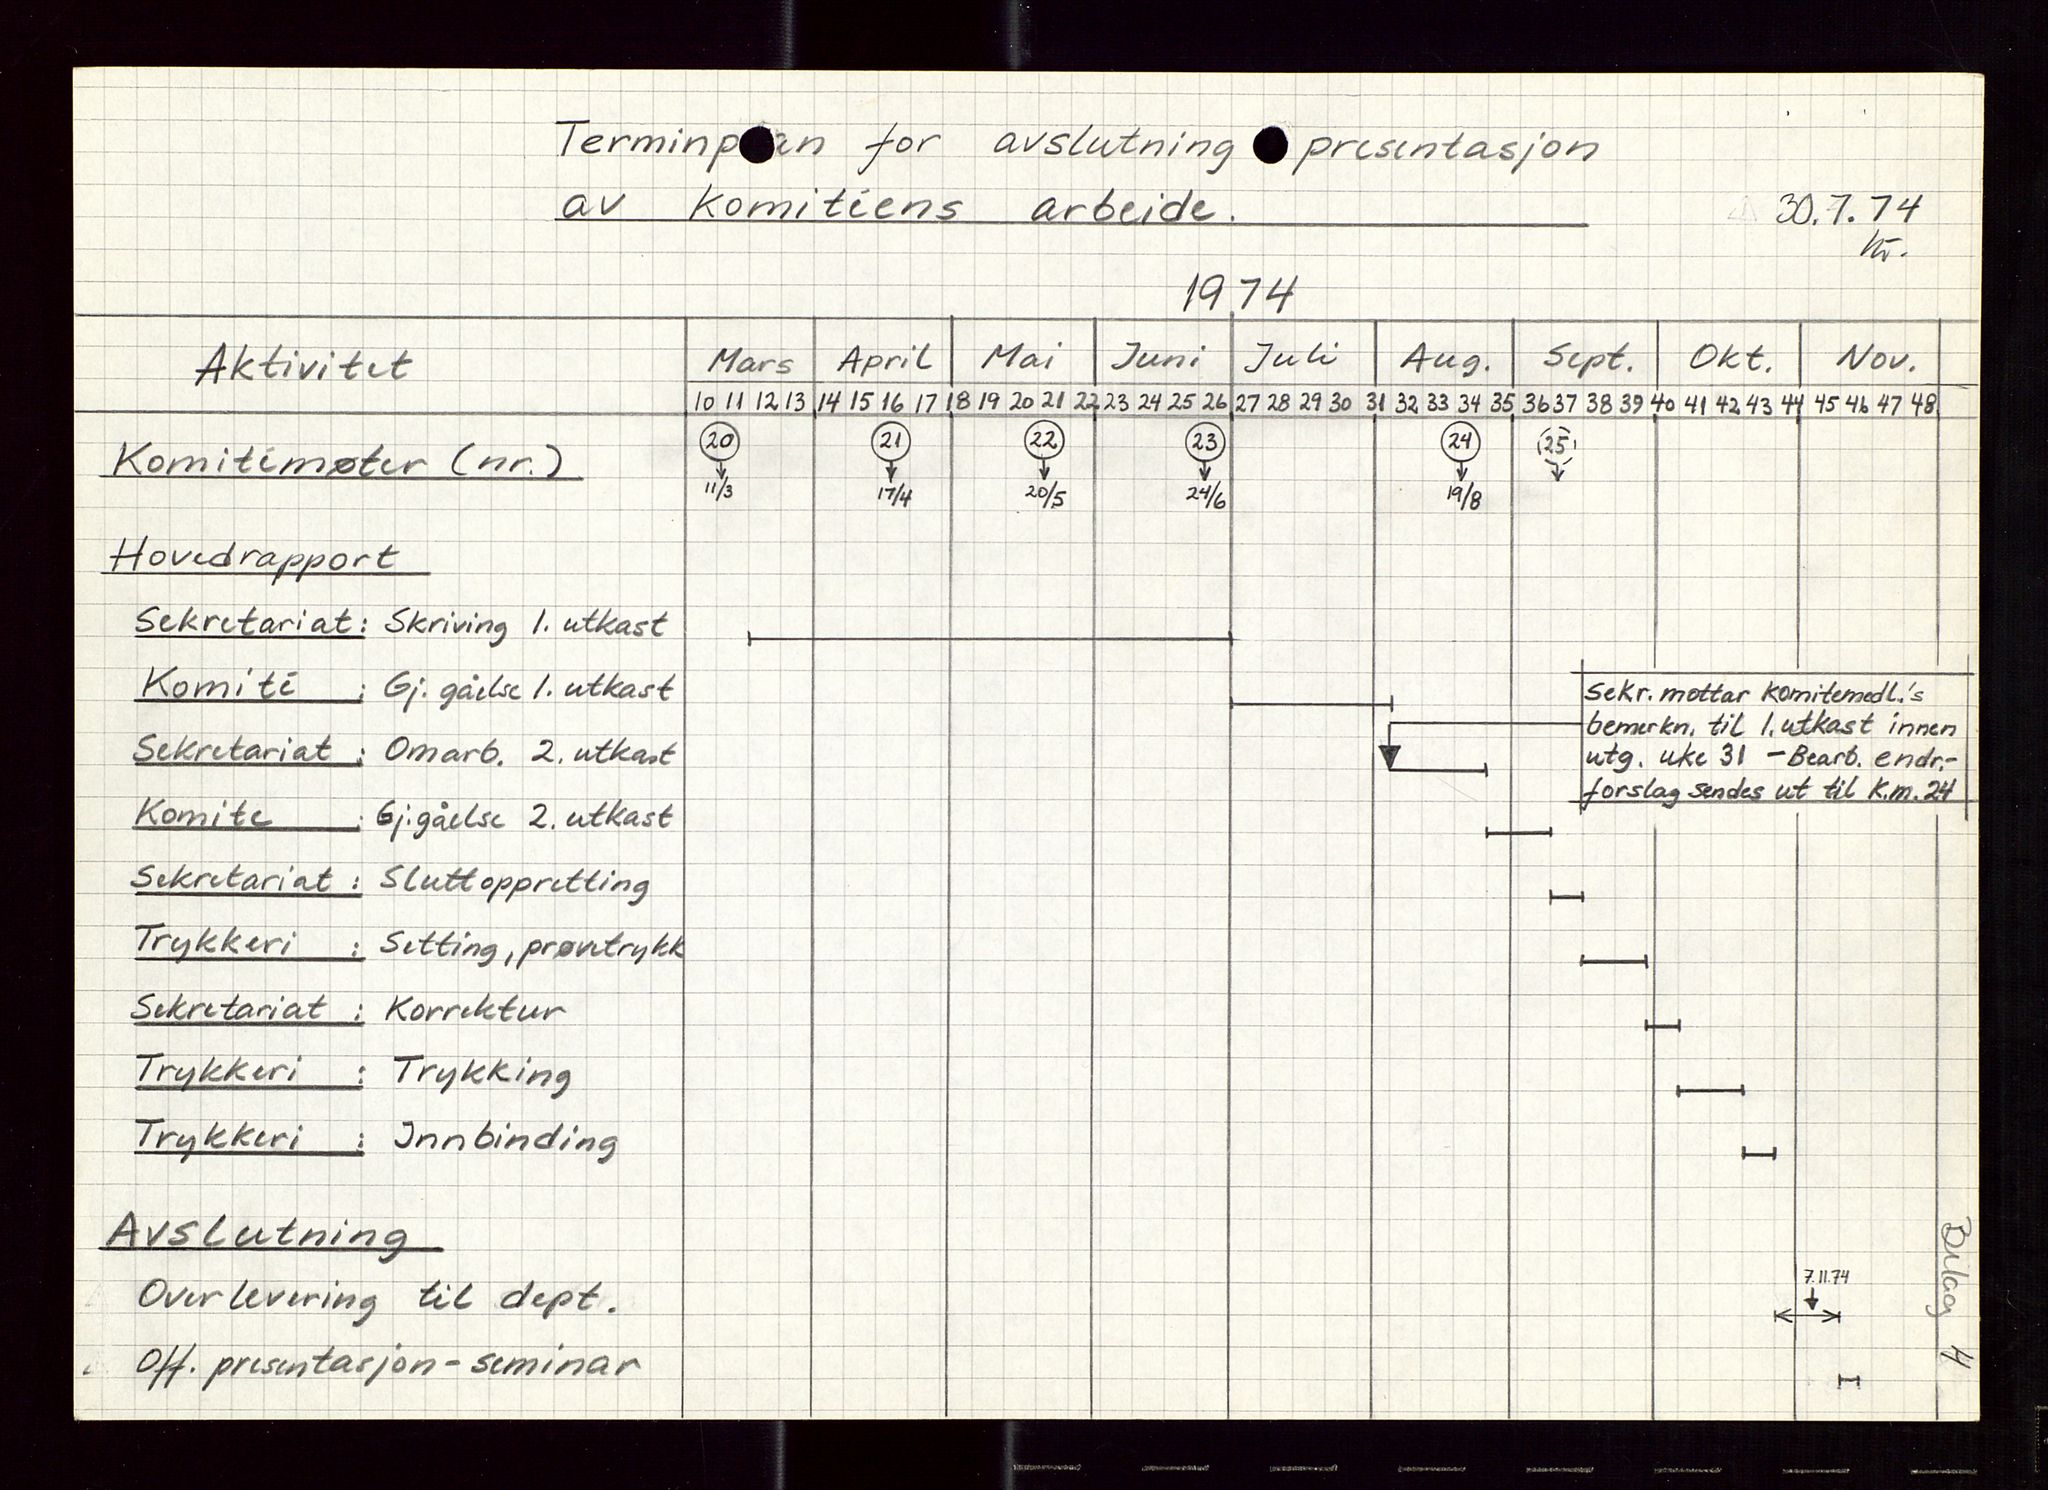 Terminplan for avslutning presentasjon
av Komitéens arbeide.
30.7.74
1974
Aktivitet Mars April Mai Juni Juli Aug. Sept. Okt. Nov.
10 11 12 13 14 15 16 17 18 19 20 21 22 23 24 25 26 27 28 29 30 31 32 33 34 35 36 37 38 39 40 41 42 43 44 45 46 47 48
Komitémøter (nr.) 20 21 22 23 24 25
11/3 17/4 20/5 24/6 19/8
Hovedrapport
Sekretariat: Skriving 1. utkast
Komité : Gj. gåelse 1. utkast
Sekr. mottar Komitemedl.'s
bemerkn. til 1. utkast innen
utg. uke 31 – Bearb. endr.-
forslag sendes ut til K.m. 24
Sekretariat : Omarb. 2. utkast
Komite : Gj.gåelse 2. utkast
Sekretariat : Sluttoppretting
Trykkeri : Setting, prøvetrykk
Sekretariat : Korrektur
Trykkeri : Trykking
Trykkeri : Innbinding
Avslutning
Overlevering til dept.
7.11.74
Off. presentasjon – seminar
Bilag 4